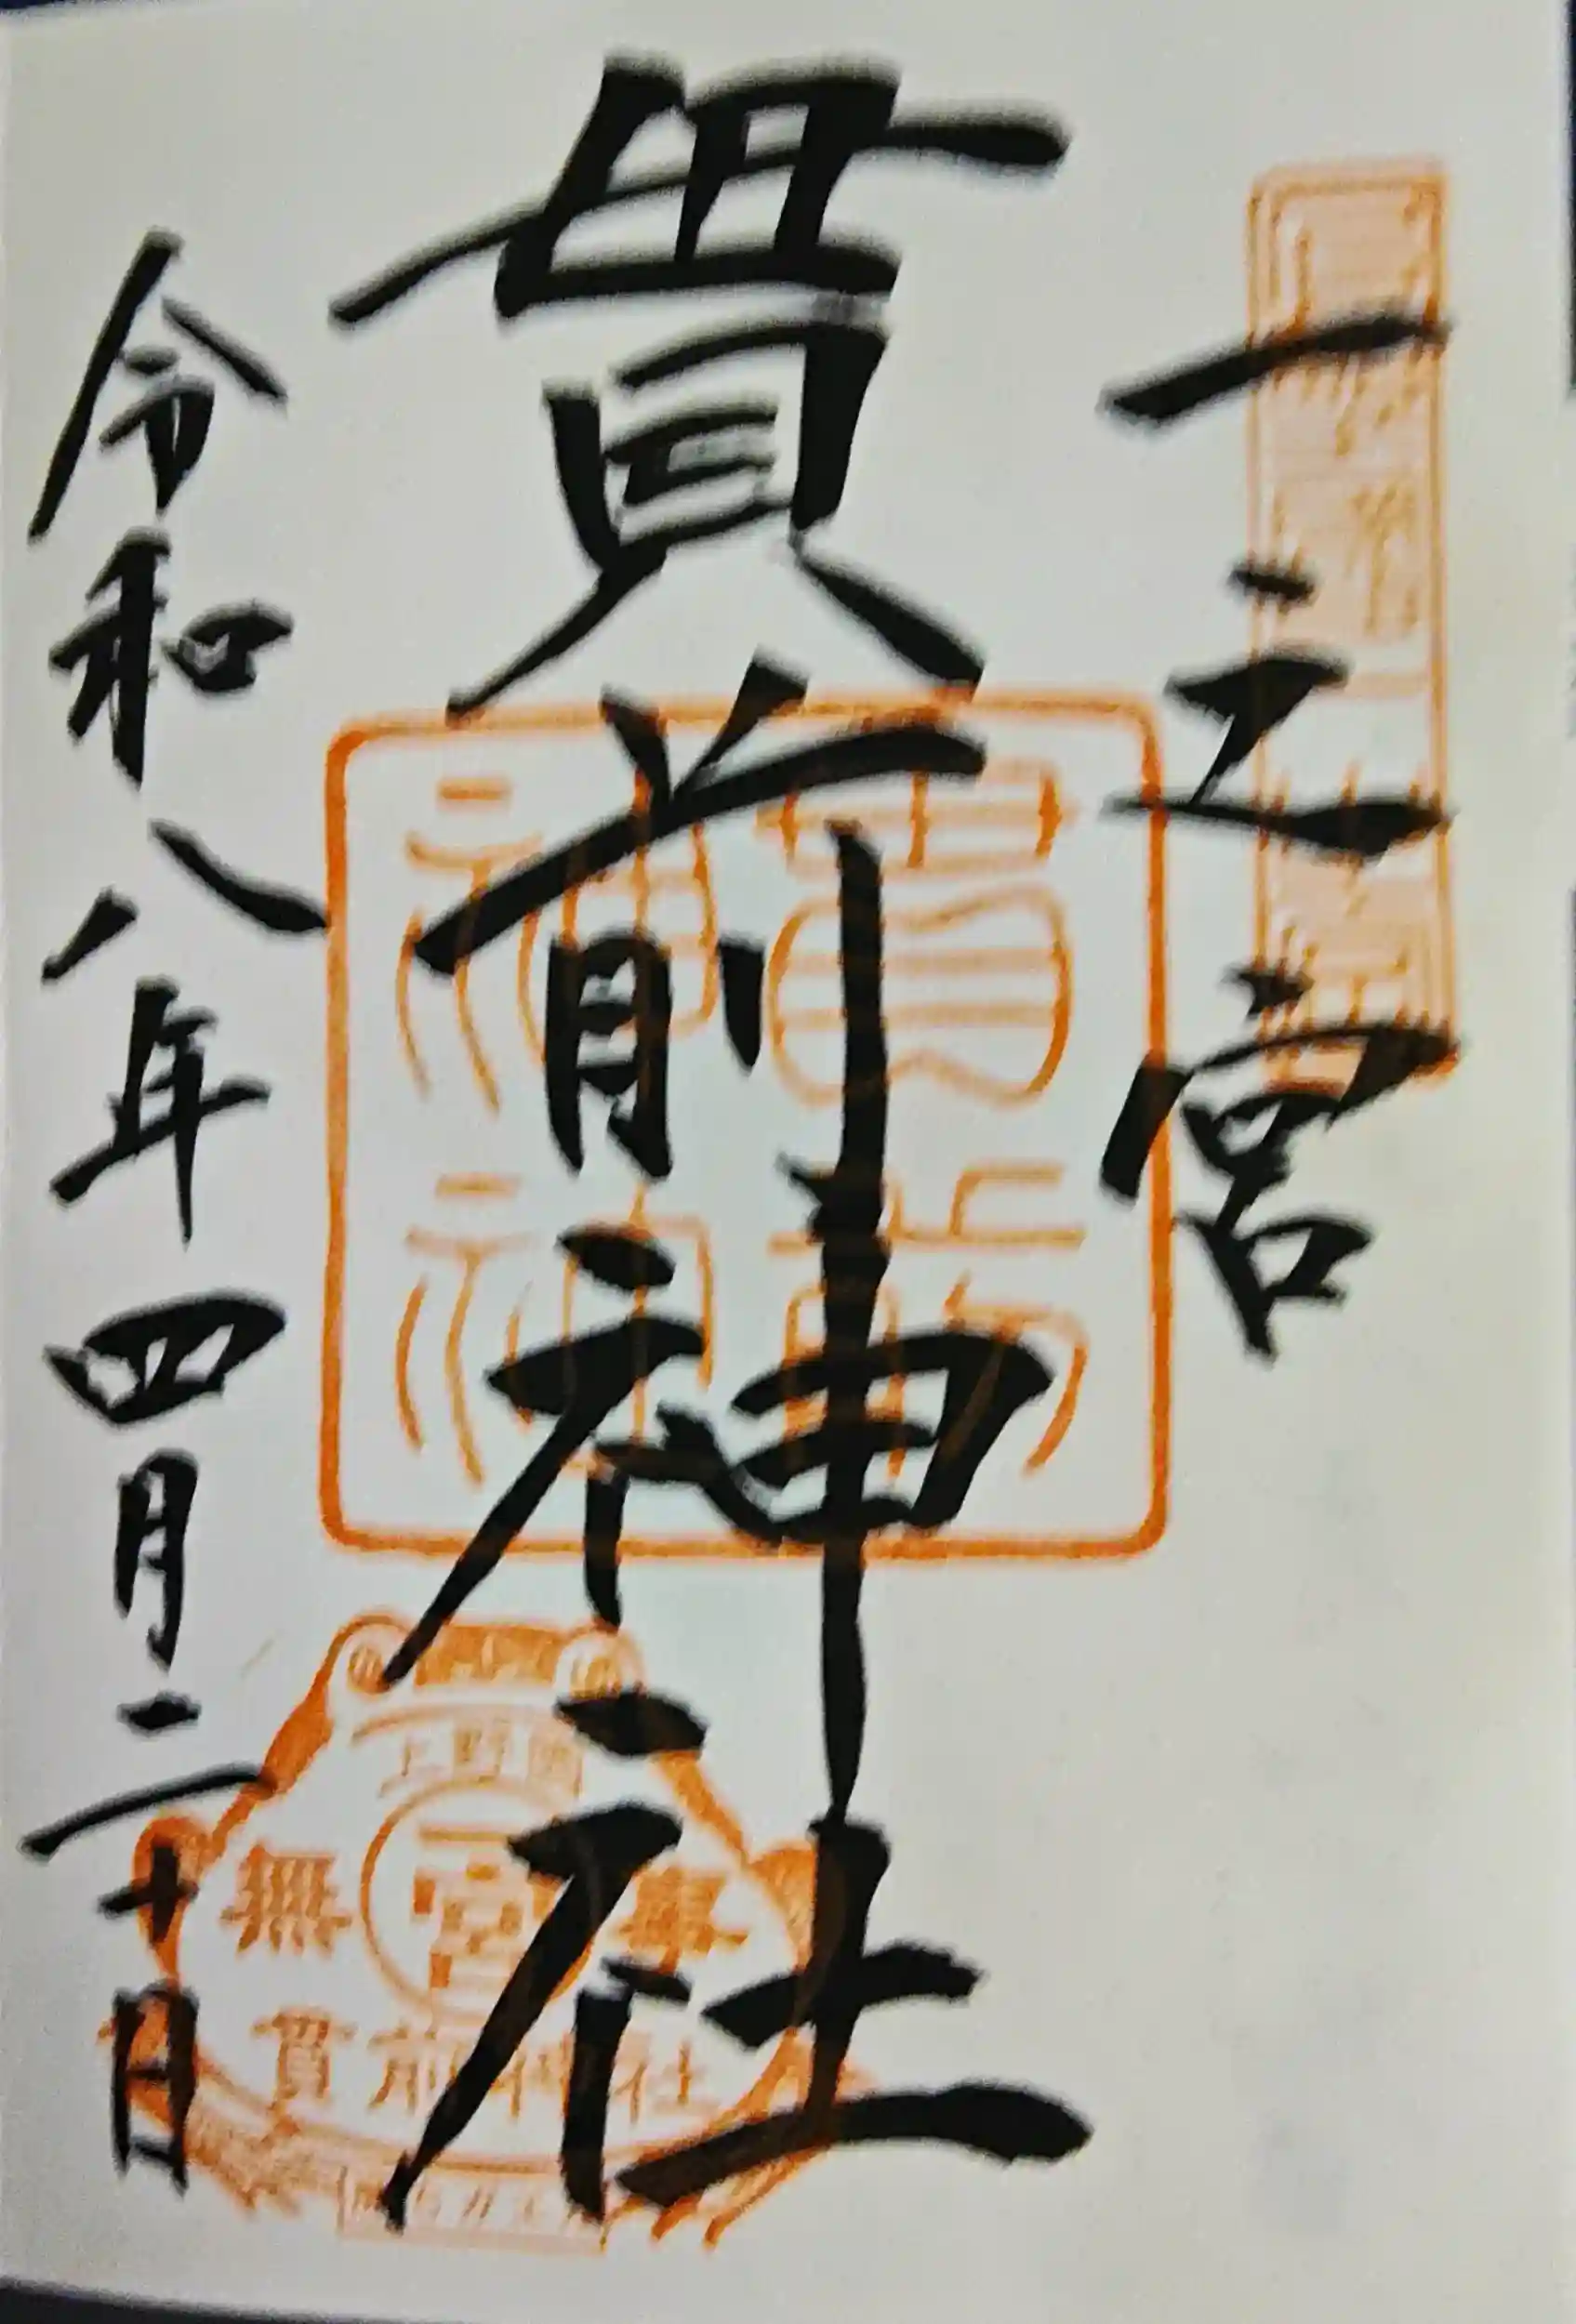 一之宮
貫前神社
令和八年四月二十日
貫前
神社
上野國
無事
一宮
貫前神社